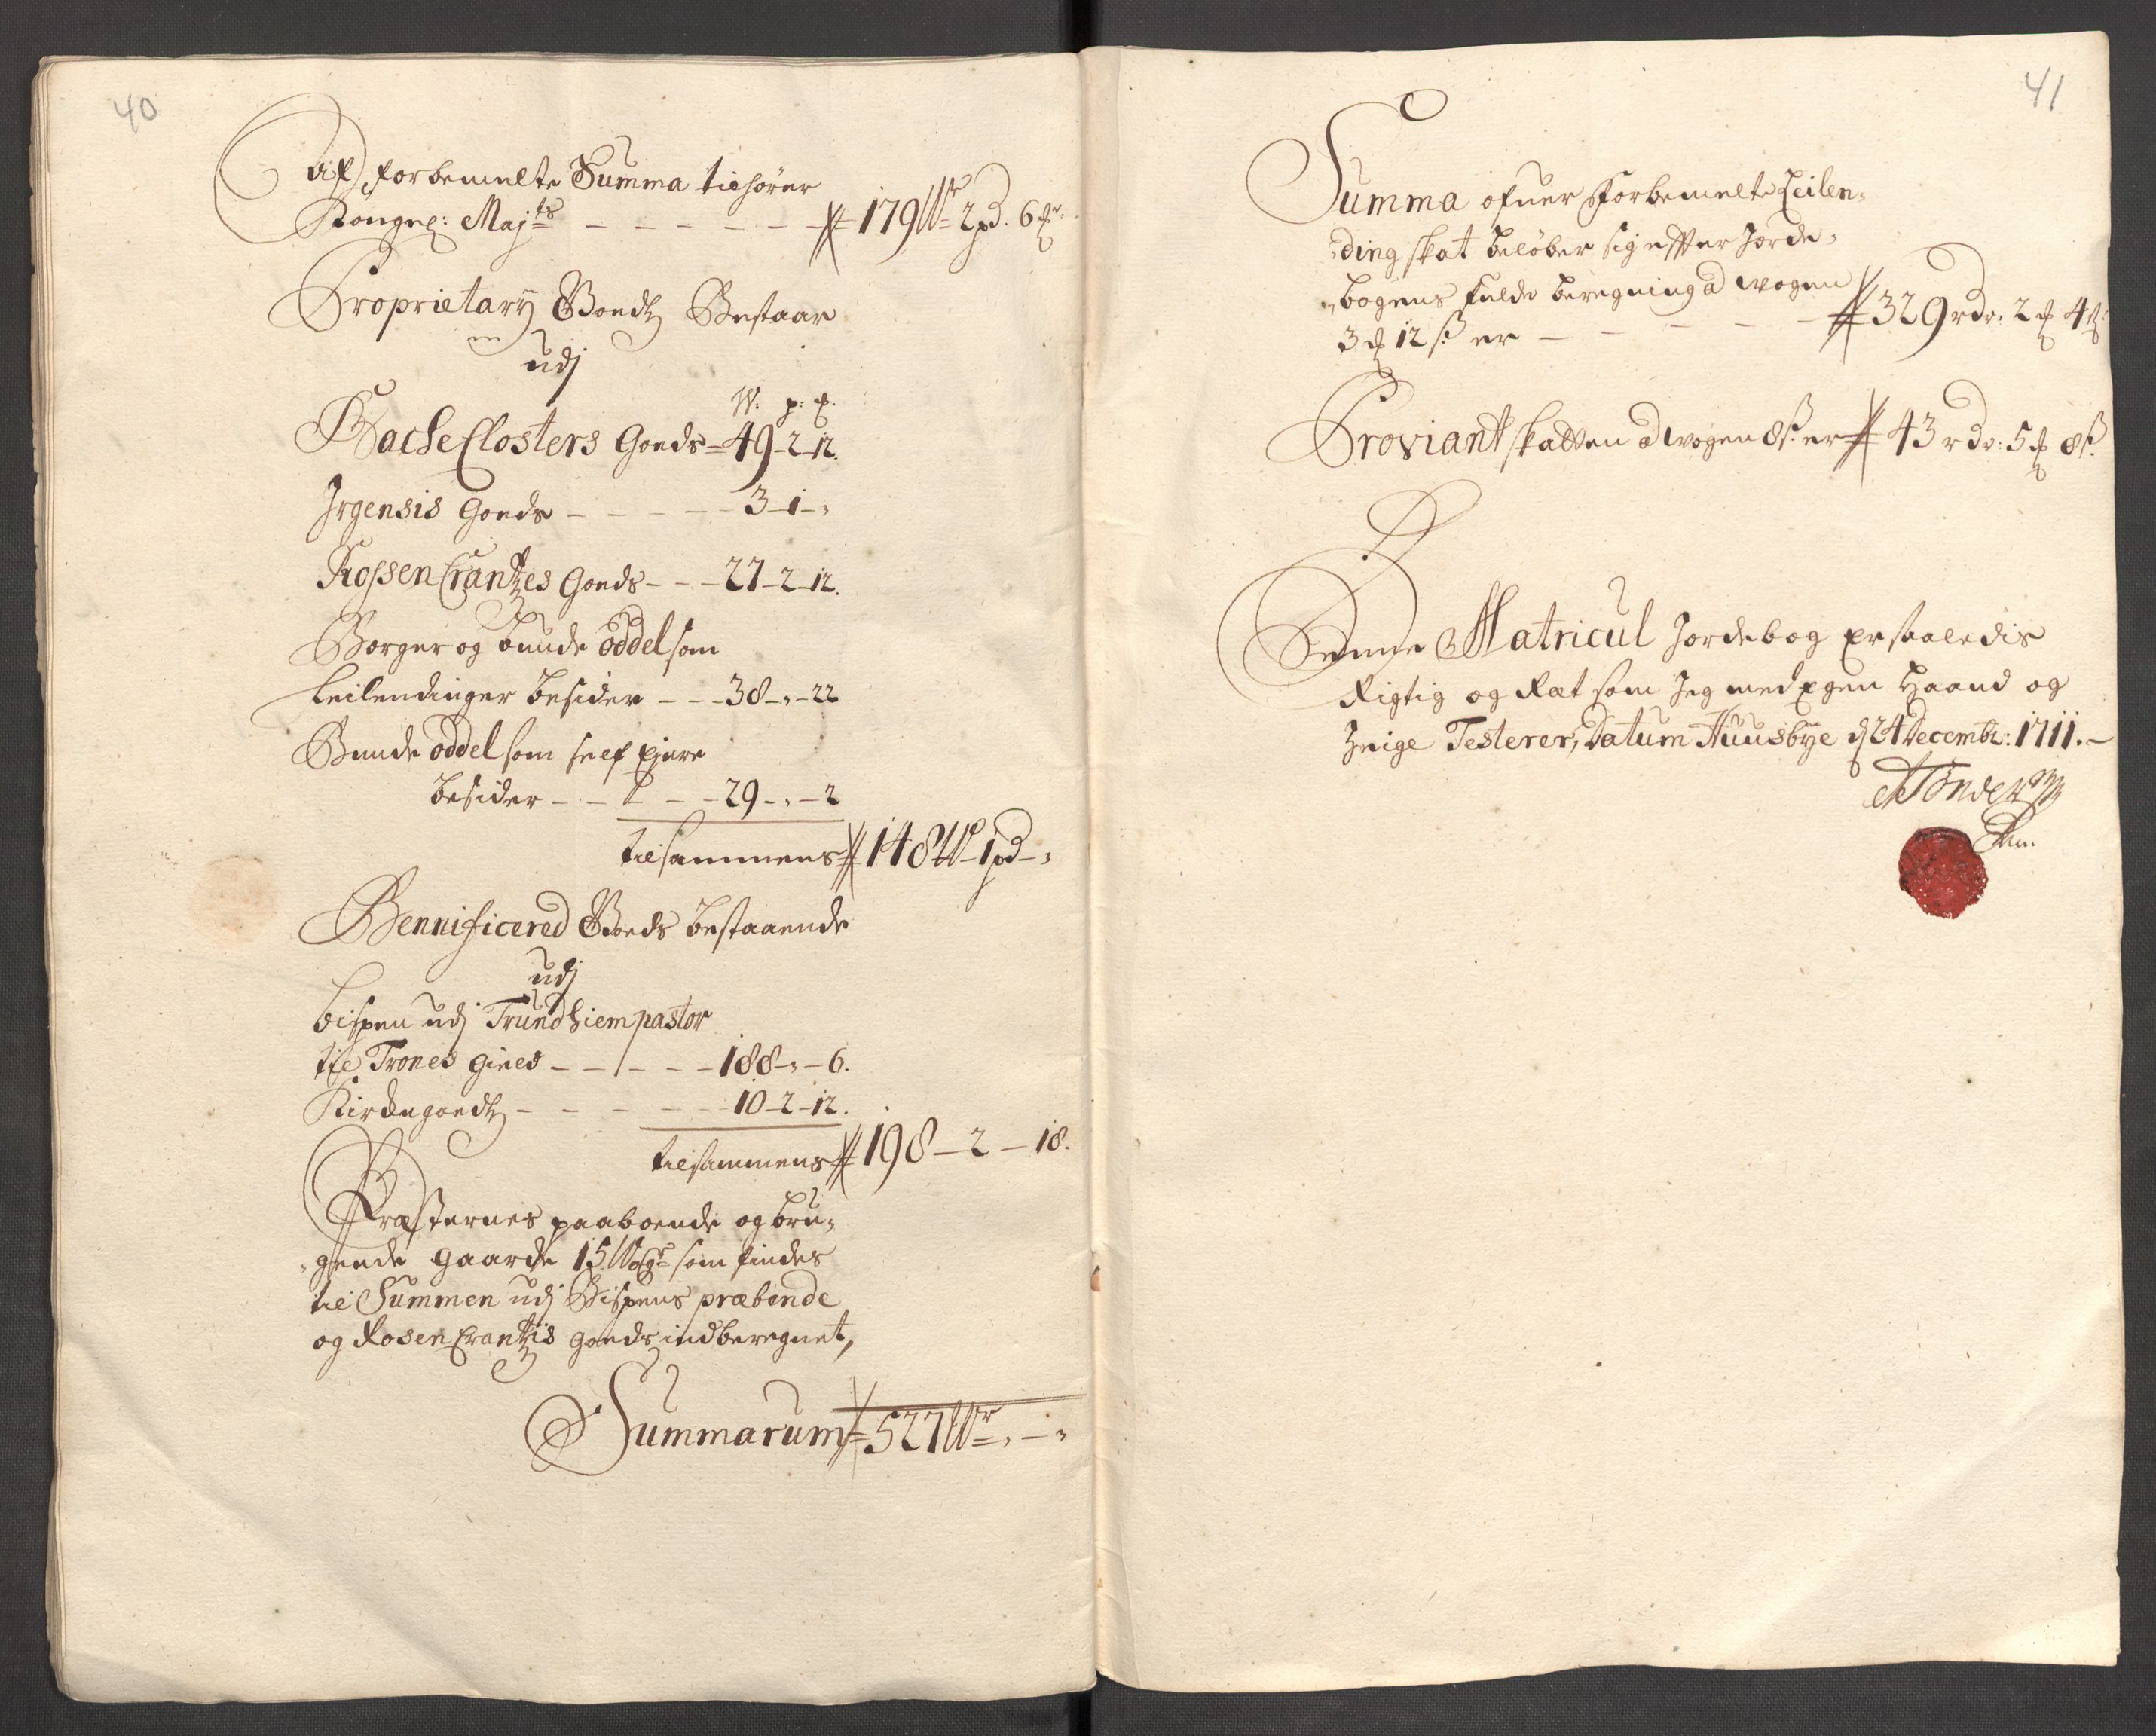 40
Af forbemelte Summa tilhører
Kongel: Maj:ts - - - - - - 179 W 2 pd. 6 
Proprietary Goedtz Bestaar
udj
W: p:
Bache Closters Goeds - 49 - 2 - 12.
Irgensis Goeds - - - - - 3 - 1 -
Rossen Crantzes Goeds - - - 27 - 2 - 12.
Borger og bunde oddel som
Leilendinger besider - - - 38 - " - 22
Bunde oddel som self Ejere
besider - - - - - 29 - " - 2
tilsammens 148 W 1 pd - "
Bennificered Goeds bestaaende
udj
bispen udj Trundhiem pastor
til Trones gield - - - - - 188 - " - 6.
Kirkegoedtz - - - - - 10 - 2 - 12.
tilsammens 198 - 2 - 18.
Præsternes paaboende og bru-
gende gaarde 15 W som findes
til Summen udj Bispens præbende
og Rosen Crantzis goeds indberegnet,
Summarum 527 W - " - "
41
Summa ofuer Forbemelte Leilen-
ding skat beløber sig effter Jorde-
bogens fulde beregning ad wogen
3  12 s er - - - - 329 rdr. 2  4 s
Proviant skatten ad wogen 8 s. er 43 rdr: 5  8 s
Denne Matricul Jordebog er saaledis
Rigtig og Ræt som Jeg med Egen Haand og
Zeigl Testerer, Datum Huusbye d 24 Decembr: 1711. -
Tønder